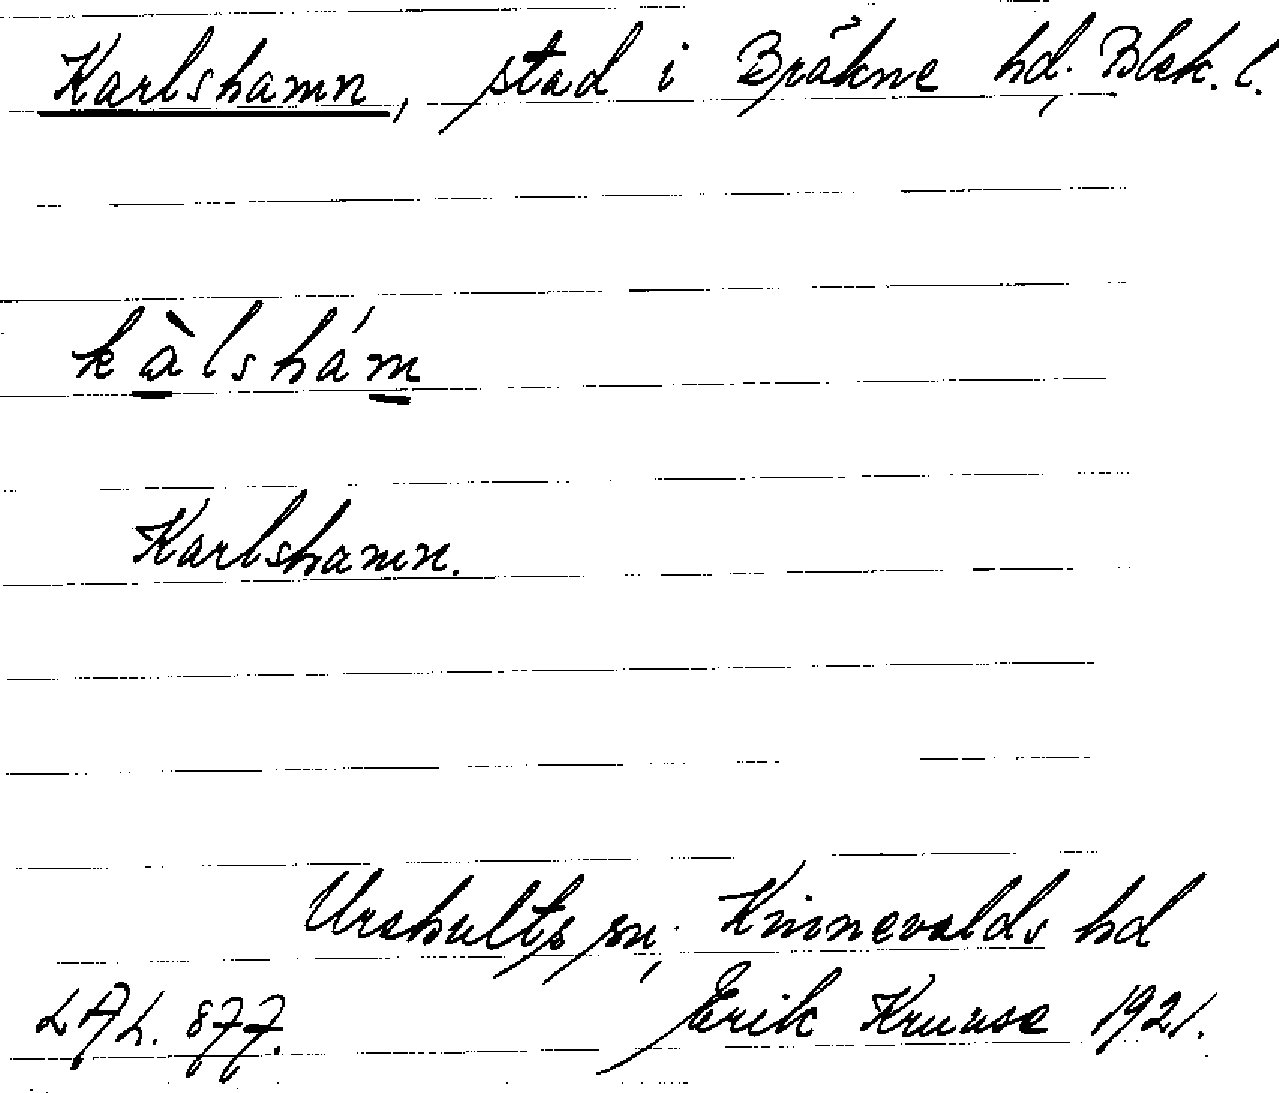 Karlshamn, stad i Bräkne hd, Blek. l.
kàlshám
Karlshamn.
Urshults sn, Kinnevalds hd
LAL. 877. Erik Kruuse 1921.